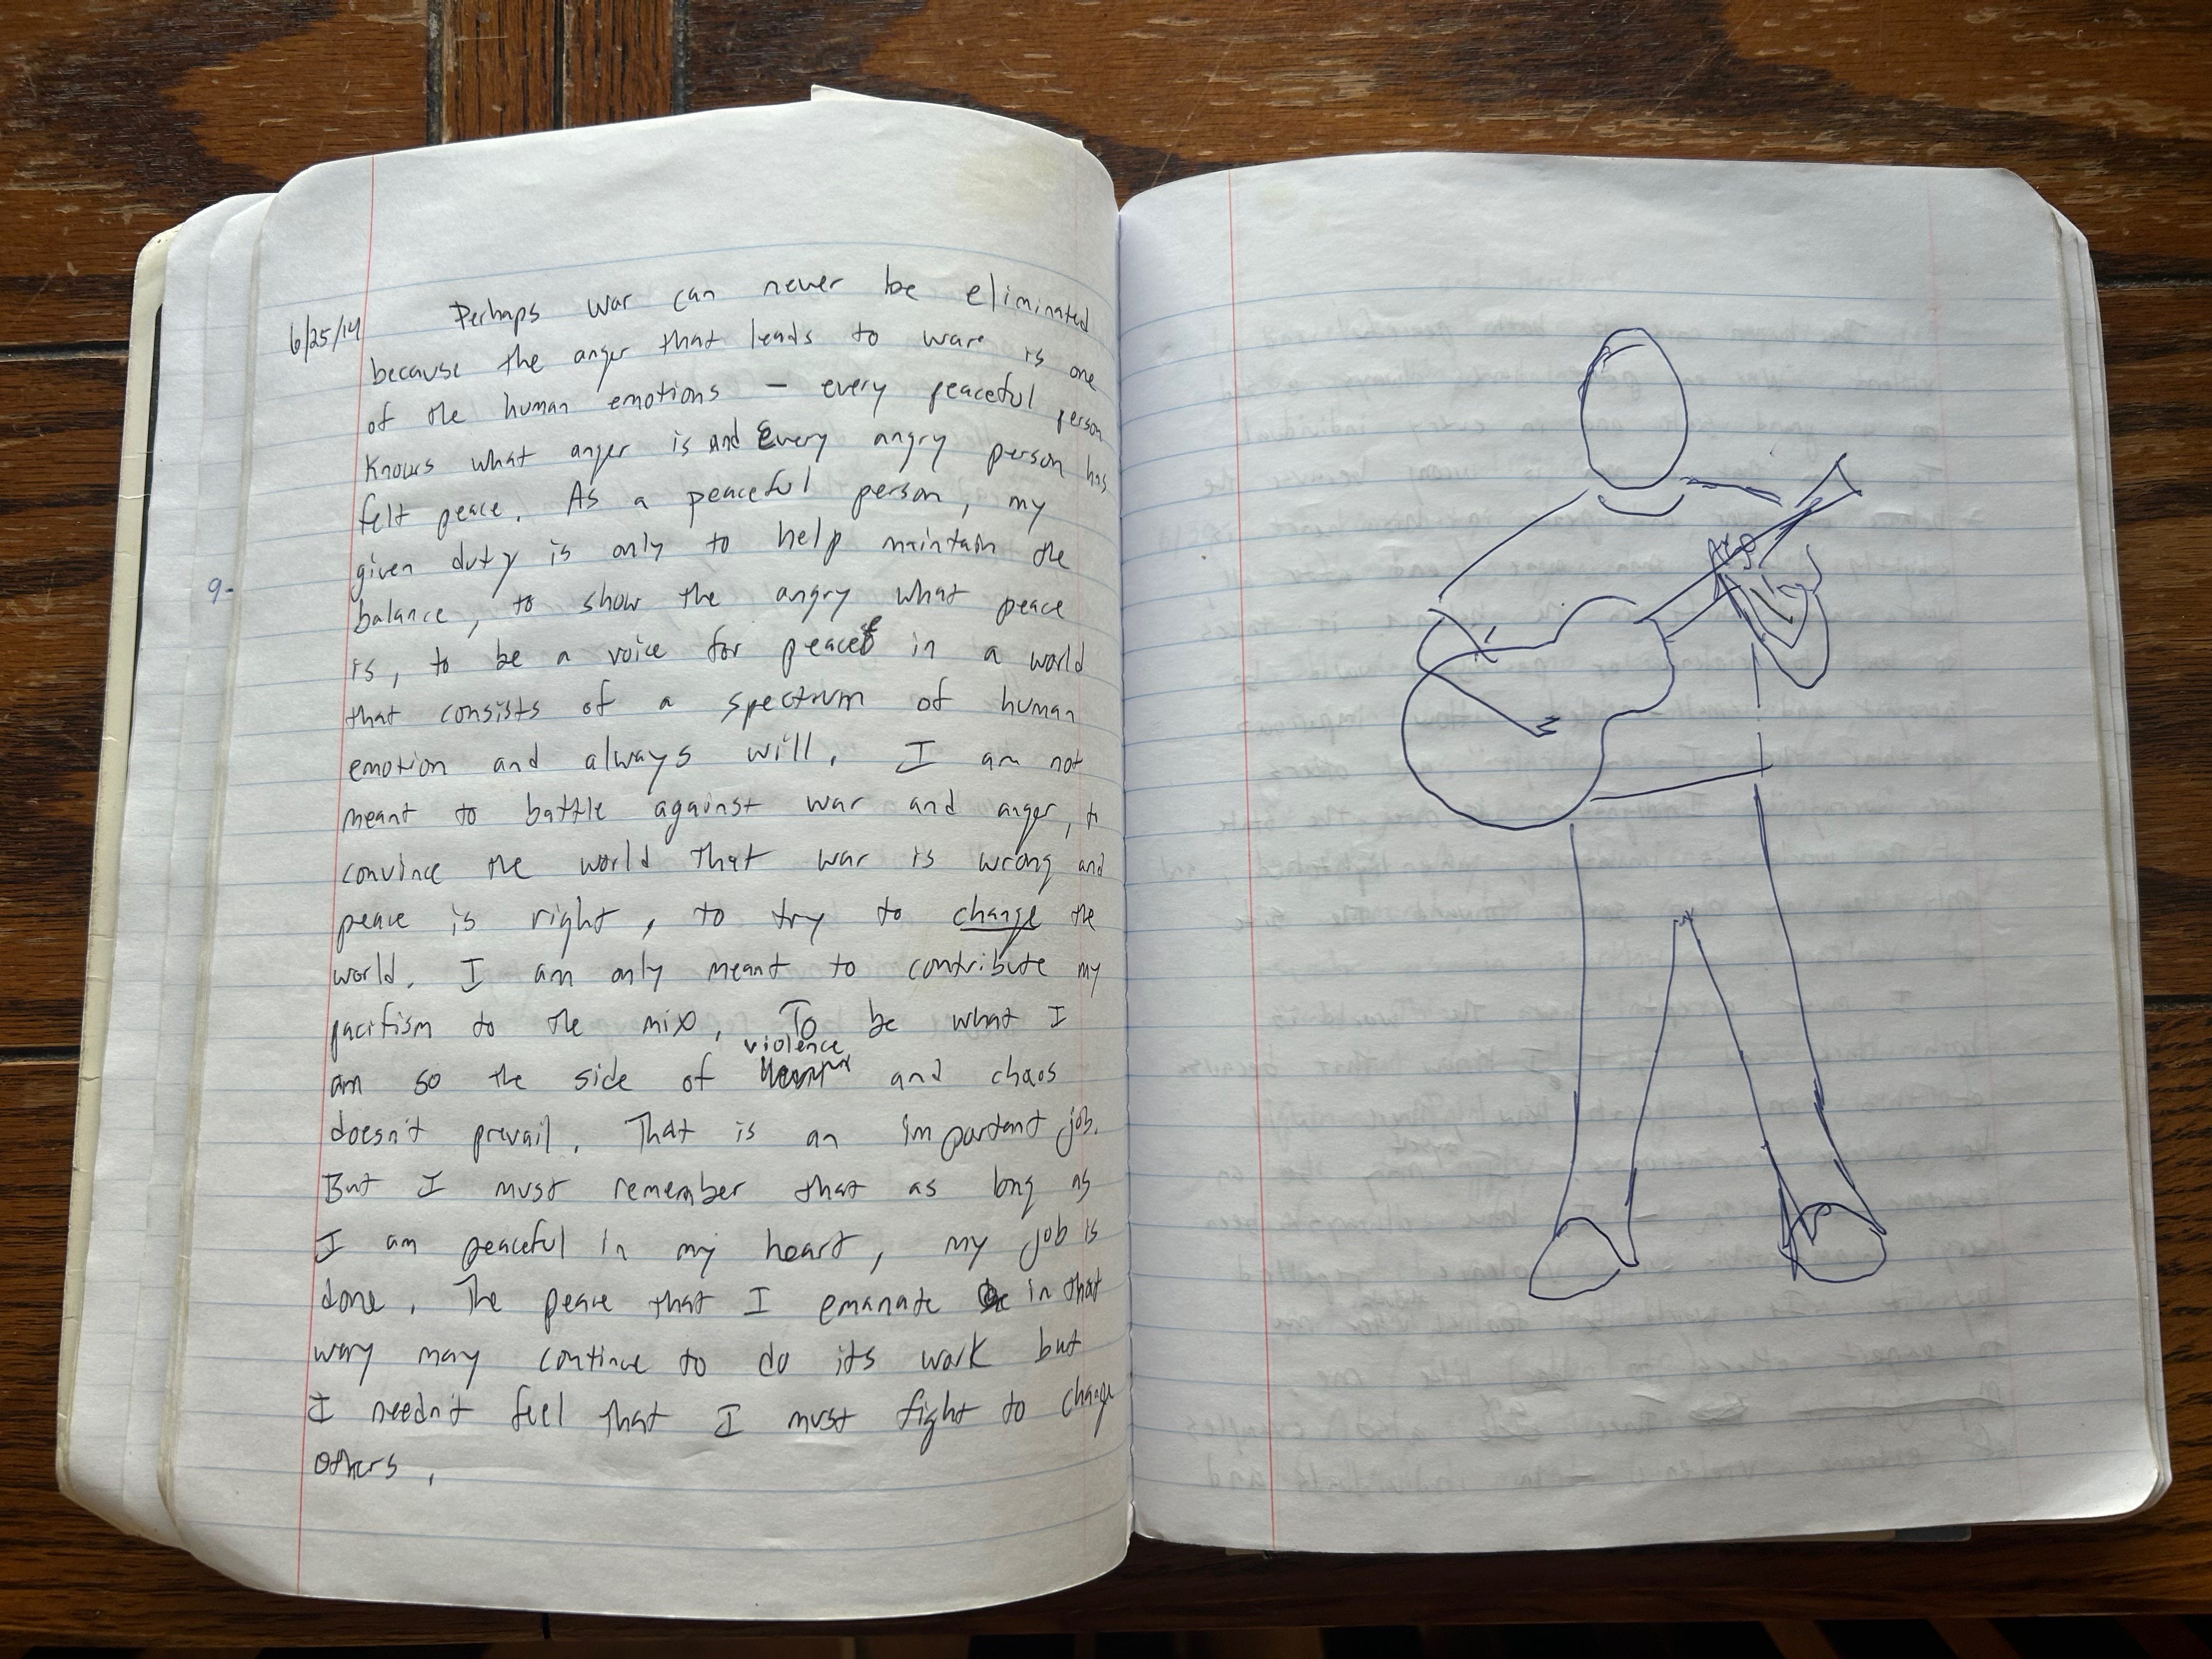 6/25/14 Perhaps war can never be eliminated
because the anger that leads to ware is one
of the human emotions — every peaceful person
knows what anger is and Every angry person has
felt peace. As a peaceful person, my
given duty is only to help maintain the
balance, to show the angry what peace
9-
is, to be a voice for peace in a world
that consists of a spectrum of human
emotion and always will. I am not
meant to battle against war and anger, to
convince the world that war is wrong and
peace is right, to try to change the
world. I am only meant to contribute my
pacifism to the mix. To be what I
violence
am so the side of and chaos
doesn't prevail. That is an important job.
But I must remember that as long as
I am peaceful in my heart, my job is
done. The peace that I emanate in that
way may continue to do its work but
I needn't feel that I must fight to change
others.